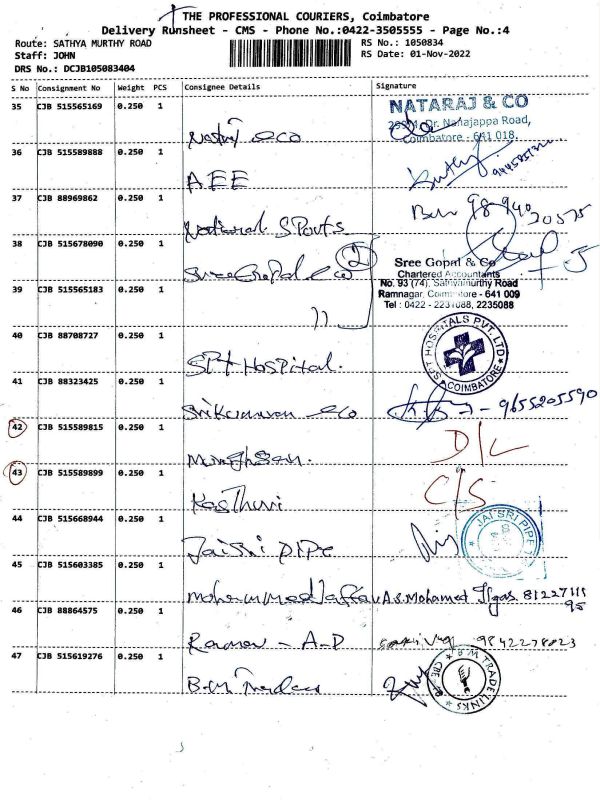 THE PROFESSIONAL COURIERS, Coimbatore
Delivery Runsheet - CMS - Phone No.:0422-3505555 - Page No.:4
Route: SATHYA MURTHY ROAD RS No.: 1050834
Staff: JOHN RS Date: 01-Nov-2022
DRS No.: DCJB105083404
S No Consignment No Weight PCS Consignee Details Signature
35 CJB 515565169 0.250 1
NATARAJ & CO
Dr. Nanajappa Road,
Coimbatore - 641 018.
36 CJB 515589888 0.250 1
AEE
37 CJB 88969862 0.250 1
National Sports
38 CJB 515678090 0.250 1
Sree Gopal & Co 2
Sree Gopal & Co
Chartered Accountants
No. 93 (74), Sathyamurthy Road
Ramnagar, Coimbatore - 641 009
Tel : 0422 - 2231088, 2235088
39 CJB 515565183 0.250 1
40 CJB 88708727 0.250 1
SPT Hospital.
SPT HOSPITALS PVT. LTD
COIMBATORE
41 CJB 88323425 0.250 1
Srikumaran & co - 9655205590
42 CJB 515589815 0.250 1
D/L
43 CJB 515589899 0.250 1
Kasthuri C/S
44 CJB 515668944 0.250 1
Jaisri pipe
JAI SRI PIPE
45 CJB 515603385 0.250 1
A.S. Mohamed Ilyas 81227111
95
46 CJB 88864575 0.250 1
Raman - A-D
47 CJB 515619276 0.250 1
B.M Traders
B.M TRADE LINKS
CBE